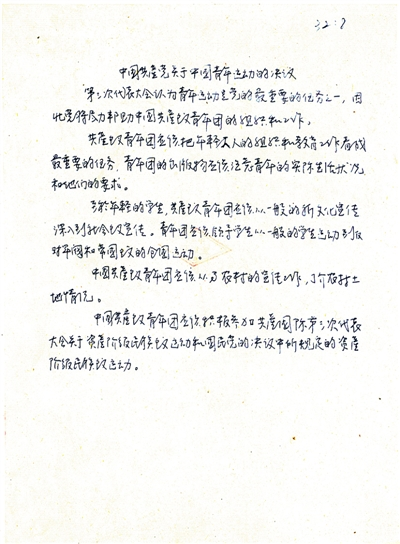 中国共产党关于中国青年运动的决议
第三次代表大会认为青年运动是党的最重要的任务之一,因
此党将尽力帮助中国共产主义青年团的组织和工作。
共产主义青年团应该把年轻工人的组织和教育工作看成
最重要的任务,青年团的出版物应该注意青年的实际生活状况
和他们的要求。
对于年轻的学生,共产主义青年团应该从一般的新文化宣传
深入到社会主义宣传。青年团应该领导学生从一般的学生运动到反
对军阀和帝国主义的全国运动。
中国共产主义青年团应该从事农村的宣传工作,了解农村土
地情况。
中国共产主义青年团应该积极参加共产国际第三次代表
大会关于资产阶级民族主义运动和国民党的决议中所规定的资产
阶级民族主义运动。